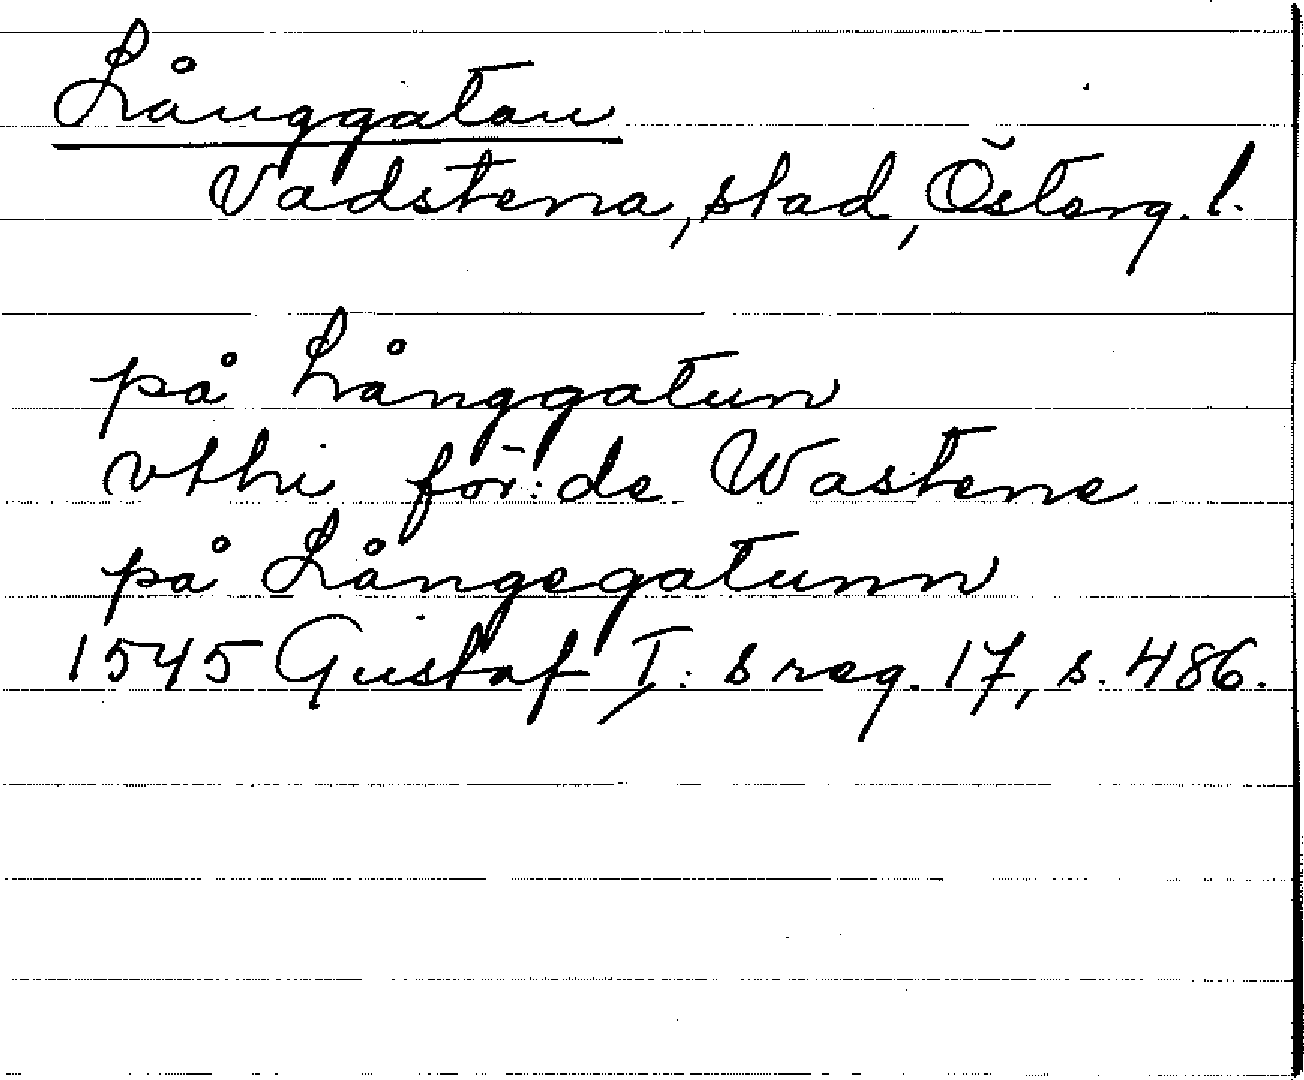 Långgatan
Vadstena, stad, Österg. l.
på Långgatun
vthi för:de Wastene
på Långegatunn
1545 Gustaf I: s reg. 17, s. 486.